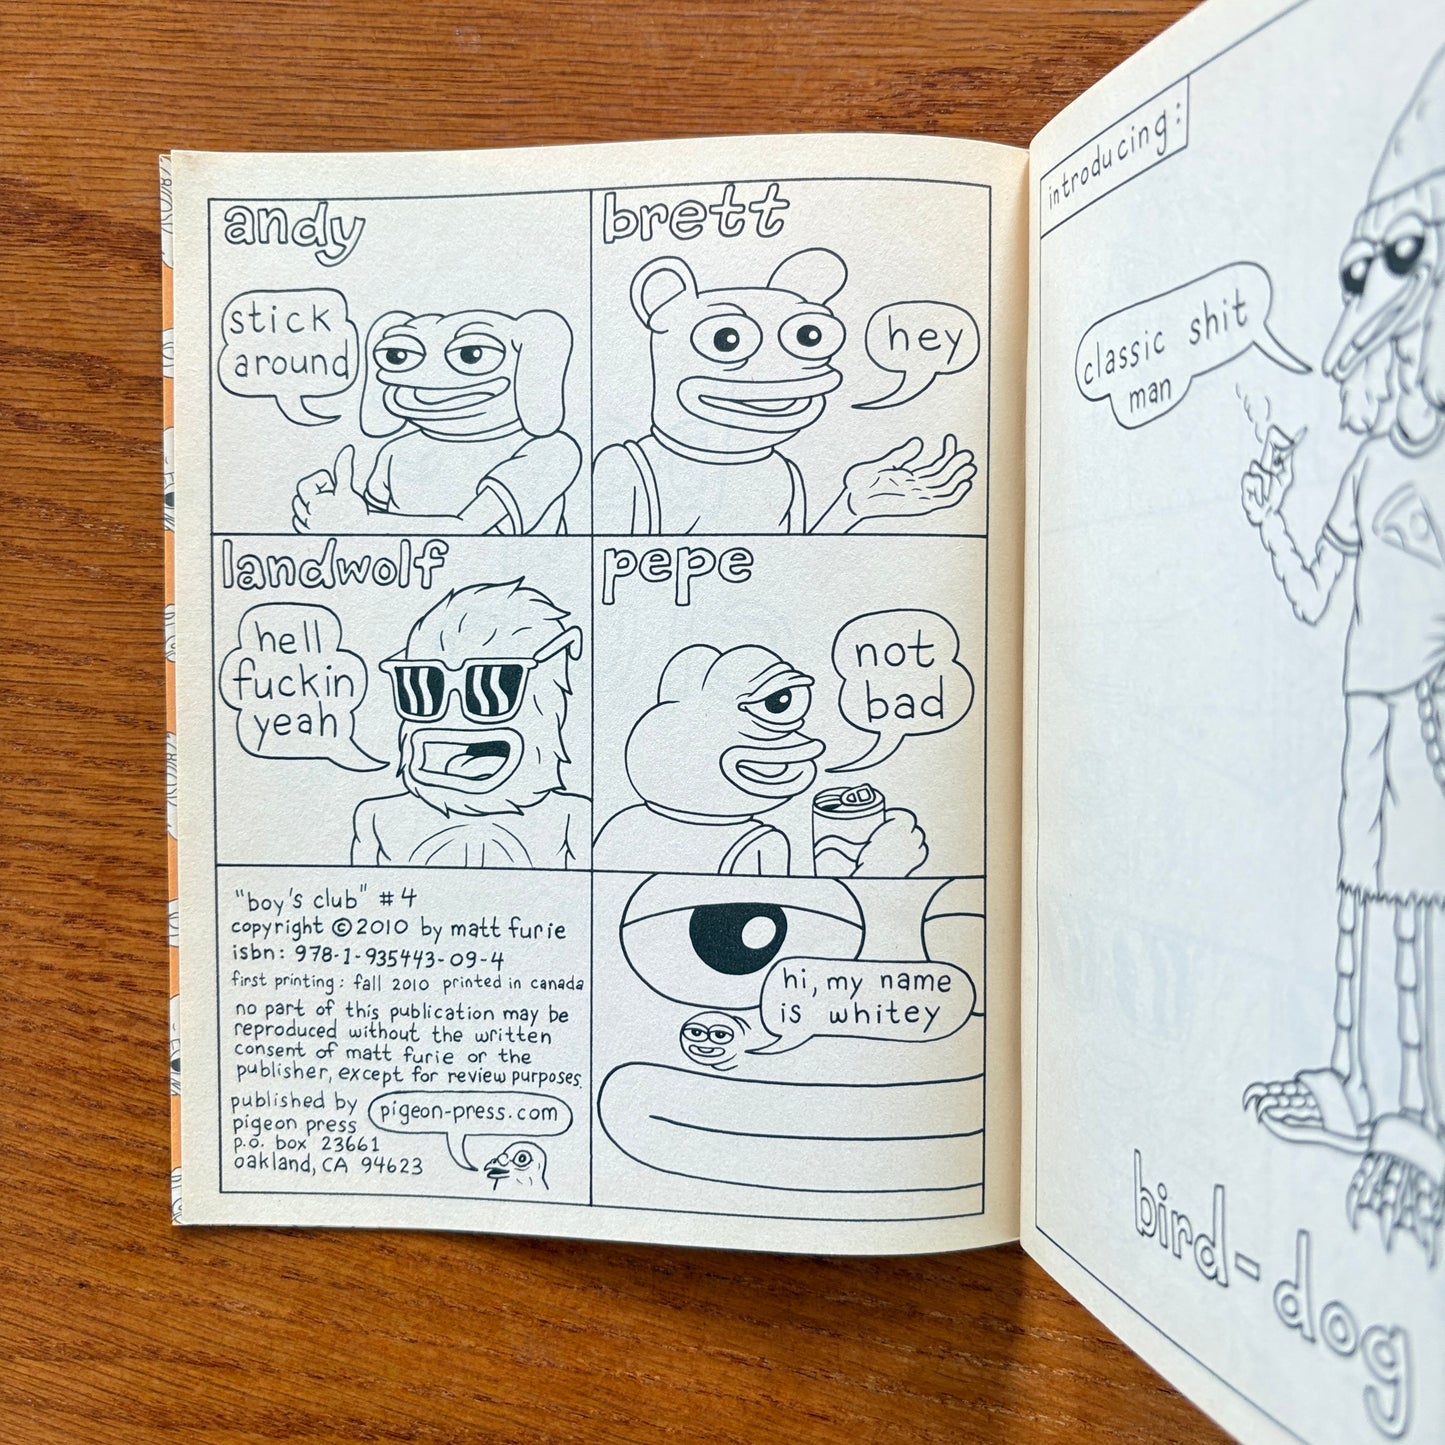 andy
stick
around
brett
hey
landwolf
hell
fuckin
yeah
pepe
not
bad
"boy's club" #4
copyright ©2010 by matt furie
isbn: 978-1-935443-09-4
first printing: fall 2010 printed in canada
no part of this publication may be
reproduced without the written
consent of matt furie or the
publisher, except for review purposes.
published by
pigeon press
p.o. box 23661
oakland, CA 94623
pigeon-press.com
hi, my name
is whitey
introducing:
classic shit
man
bird-dog